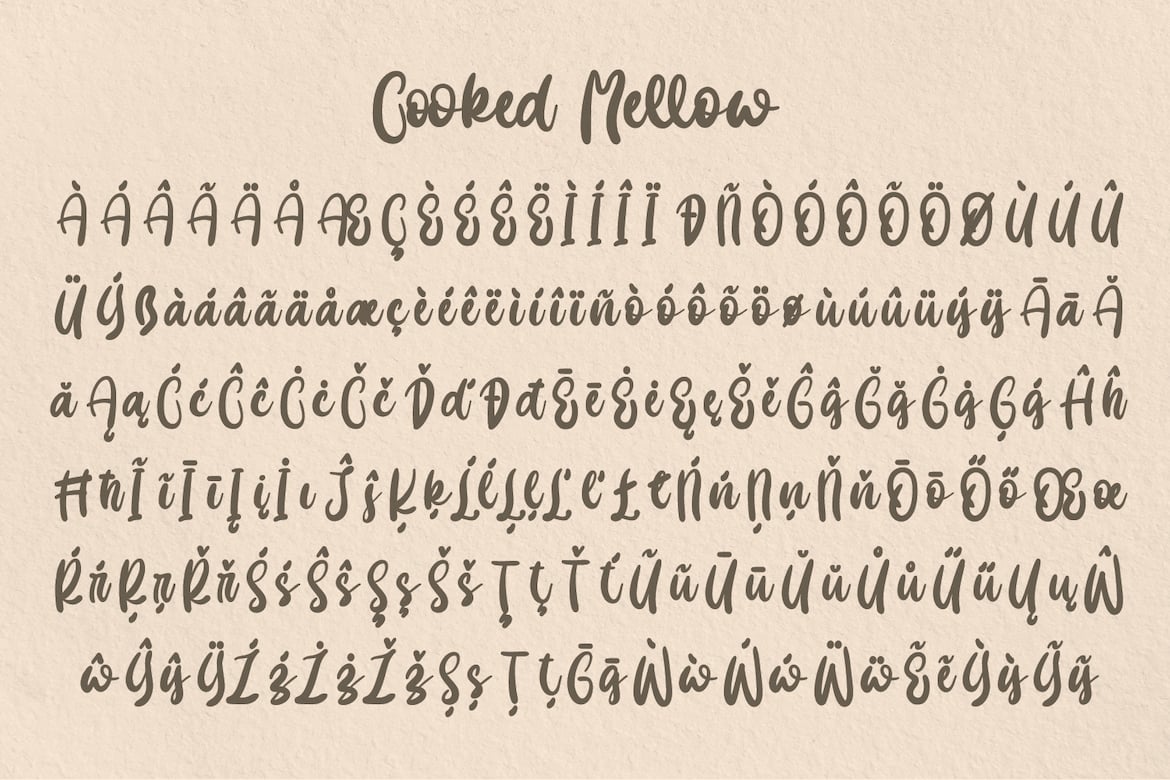 Cooked Mellow
À Á Â Ã Ä Å Æ Ç È É Ê Ë Ì Í Î Ï Đ Ñ Ò Ó Ô Õ Ö Ø Ù Ú Û
Ü Ý ß à á â ã ä å æ ç è é ê ë ì í î ï ñ ò ó ô õ ö ø ù ú û ü ý ÿ Ā ā Ă
ă Ą ą Ć ć Ĉ ĉ Ċ ċ Č č Ď ď Đ đ Ē ē Ė ė Ę ę Ě ě Ĝ ĝ Ğ ğ Ġ ġ Ģ ģ Ĥ ĥ
Ħ ħ Ĩ ĩ Ī ī Į į İ ı Ĵ ĵ Ķ ķ Ĺ ĺ Ļ ļ Ľ ľ Ł ł Ń ń Ņ ņ Ň ň Ō ō Ő ő Œ œ
Ŕ ŕ Ŗ ŗ Ř ř Ś ś Ŝ ŝ Ş ş Š š Ţ ţ Ť ť Ũ ũ Ū ū Ŭ ŭ Ů ů Ű ű Ų ų Ŵ
ŵ Ŷ ŷ Ÿ Ź ź Ż ż Ž ž Ș ș Ț ț Ḡ ḡ Ẁ ẁ Ẃ ẃ Ẅ ẅ Ẽ ẽ Ỳ ỳ Ỹ ỹ